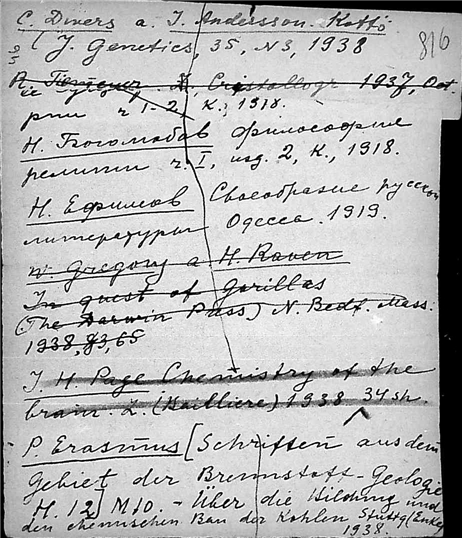 C. Divers a. J. Andersson-Kottö
(J. Genetics, 35, N3, 1938
816
Cristallogr 1937, Oct.
рии ч 1-2, К., 1918.
Н. Боголюбов Философия
религии ч. I, изд. 2, К., 1918.
Н. Ефимов Своеобразие русской
литературы Одесса. 1919.
W. Gregory a H. Raven
In quest of Gorillas
(The Darwin Press) N. Bedf. Mass.
1938, $3,65
J. H. Page Chemistry of the
brain. L. (Bailliere) 1938 34 sh.
P. Erasmus [Schriften aus dem
Gebiet der Brennstoff-Geologie
H. 12] M10. - Über die Bildung und
den chemischen Bau der Kohlen Stuttg (Enke)
1938.